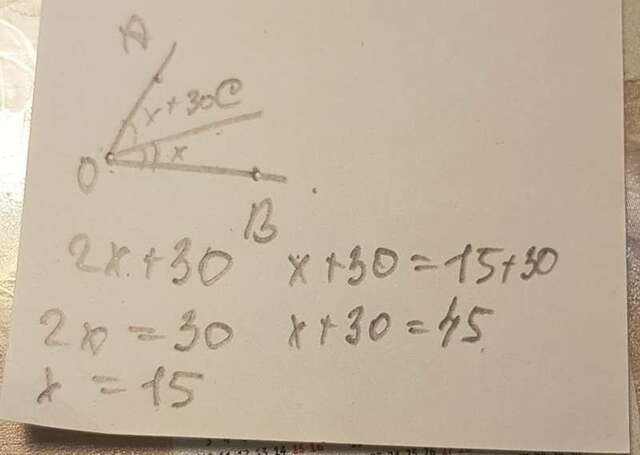 A
x+30 C
x
O
B
2x+30 x+30=15+30
2x=30 x+30=45
x=15